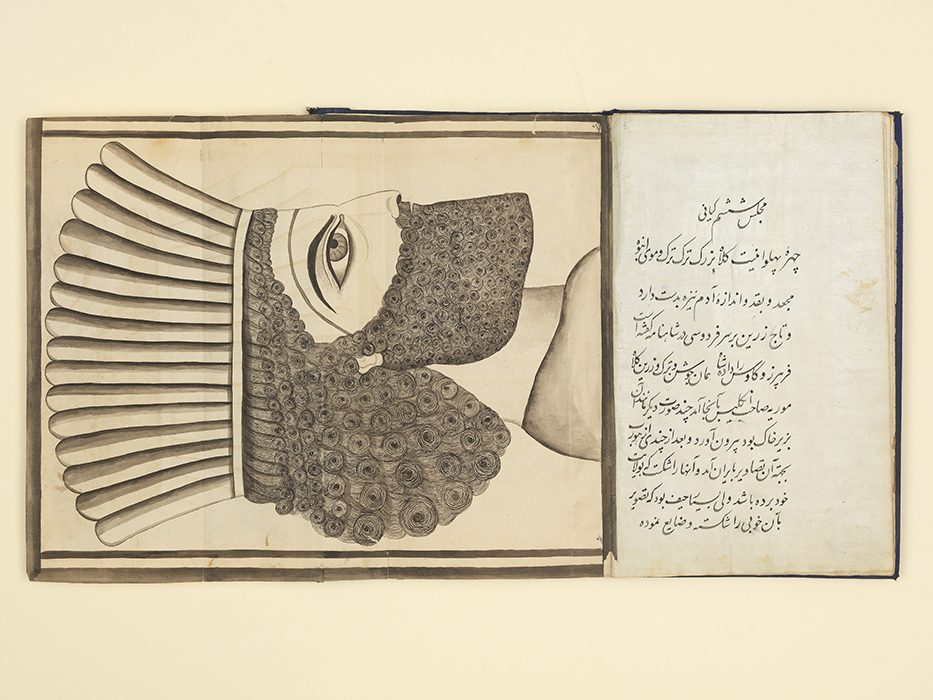 مجلس ششم کیانی
چهرهٔ پهلوانیست کلاه بزرگ ترک ترک و موی انبوه
مجعد و بقد و اندازهٔ آدم نیزه بدست دارد
و تاج زرین بر سر فردوسی در شاهنامه گفته است
فریبرز و کاوس را داده شا همان جوشن و ترک و زرین کلاه
موریه صاحب انگلیس آنجا آمد چند صورت دیگر که
بزیر خاک بود بیرون آورد و بعد از چندی
بجهة آن تصاویر بایران آمد و آنها را شکست که بولایت
خود برده باشد ولی بسیار حیف بود که تصویر
بآن خوبی را شکسته و ضایع نموده